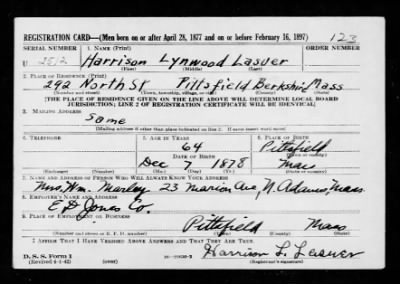 REGISTRATION CARD—(Men born on or after April 28, 1877 and on or before February 16, 1897) 123
SERIAL NUMBER 1. NAME (Print) ORDER NUMBER
Harrison Lynwood Lasuer
(First) (Middle) (Last)
2. PLACE OF RESIDENCE (Print)
292 North St Pittsfield Berkshire Mass
(Number and street) (Town, township, village, or city) (County) (State)
[THE PLACE OF RESIDENCE GIVEN ON THE LINE ABOVE WILL DETERMINE LOCAL BOARD
JURISDICTION; LINE 2 OF REGISTRATION CERTIFICATE WILL BE IDENTICAL]
3. MAILING ADDRESS
Same
[Mailing address if other than place indicated on line 2. If same insert word same]
4. TELEPHONE 5. AGE IN YEARS 6. PLACE OF BIRTH
64 Pittsfield
DATE OF BIRTH (Town or county)
Dec 7 1878 Mass
(Exchange) (Number) (Mo.) (Day) (Yr.) (State or country)
7. NAME AND ADDRESS OF PERSON WHO WILL ALWAYS KNOW YOUR ADDRESS
Mrs. Wm. Marley 23 Marion Ave, N. Adams Mass
8. EMPLOYER'S NAME AND ADDRESS
E D Jones Co.
9. PLACE OF EMPLOYMENT OR BUSINESS
Pittsfield Mass
(Number and street or R. F. D. number) (Town) (County) (State)
I AFFIRM THAT I HAVE VERIFIED ABOVE ANSWERS AND THAT THEY ARE TRUE.
D. S. S. Form 1 Harrison L. Lasuer
(Revised 4-1-42) (over) (Registrant's signature)